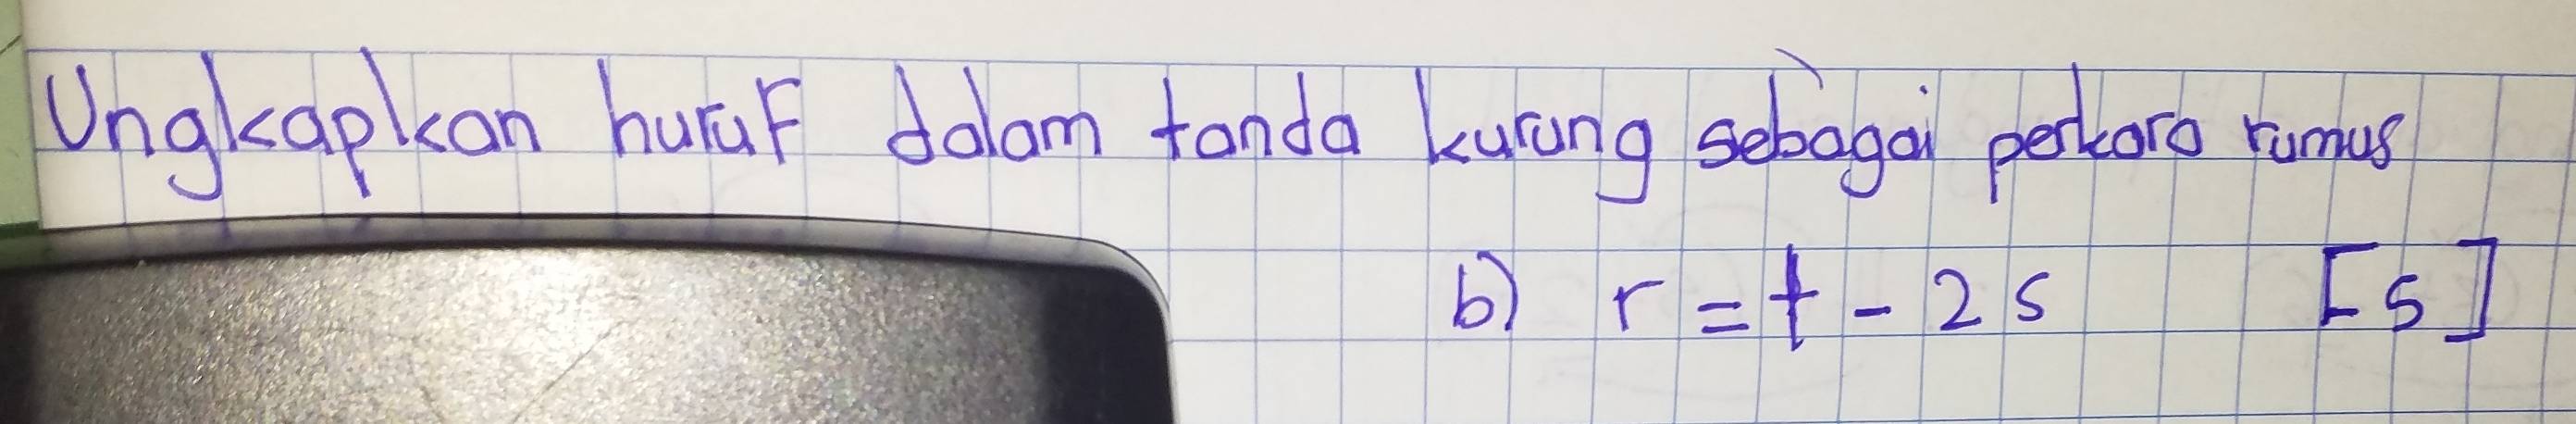 Ungkapkan huruf dalam tanda kurung sebagai perkara rumus
b) r = t - 2s [s]